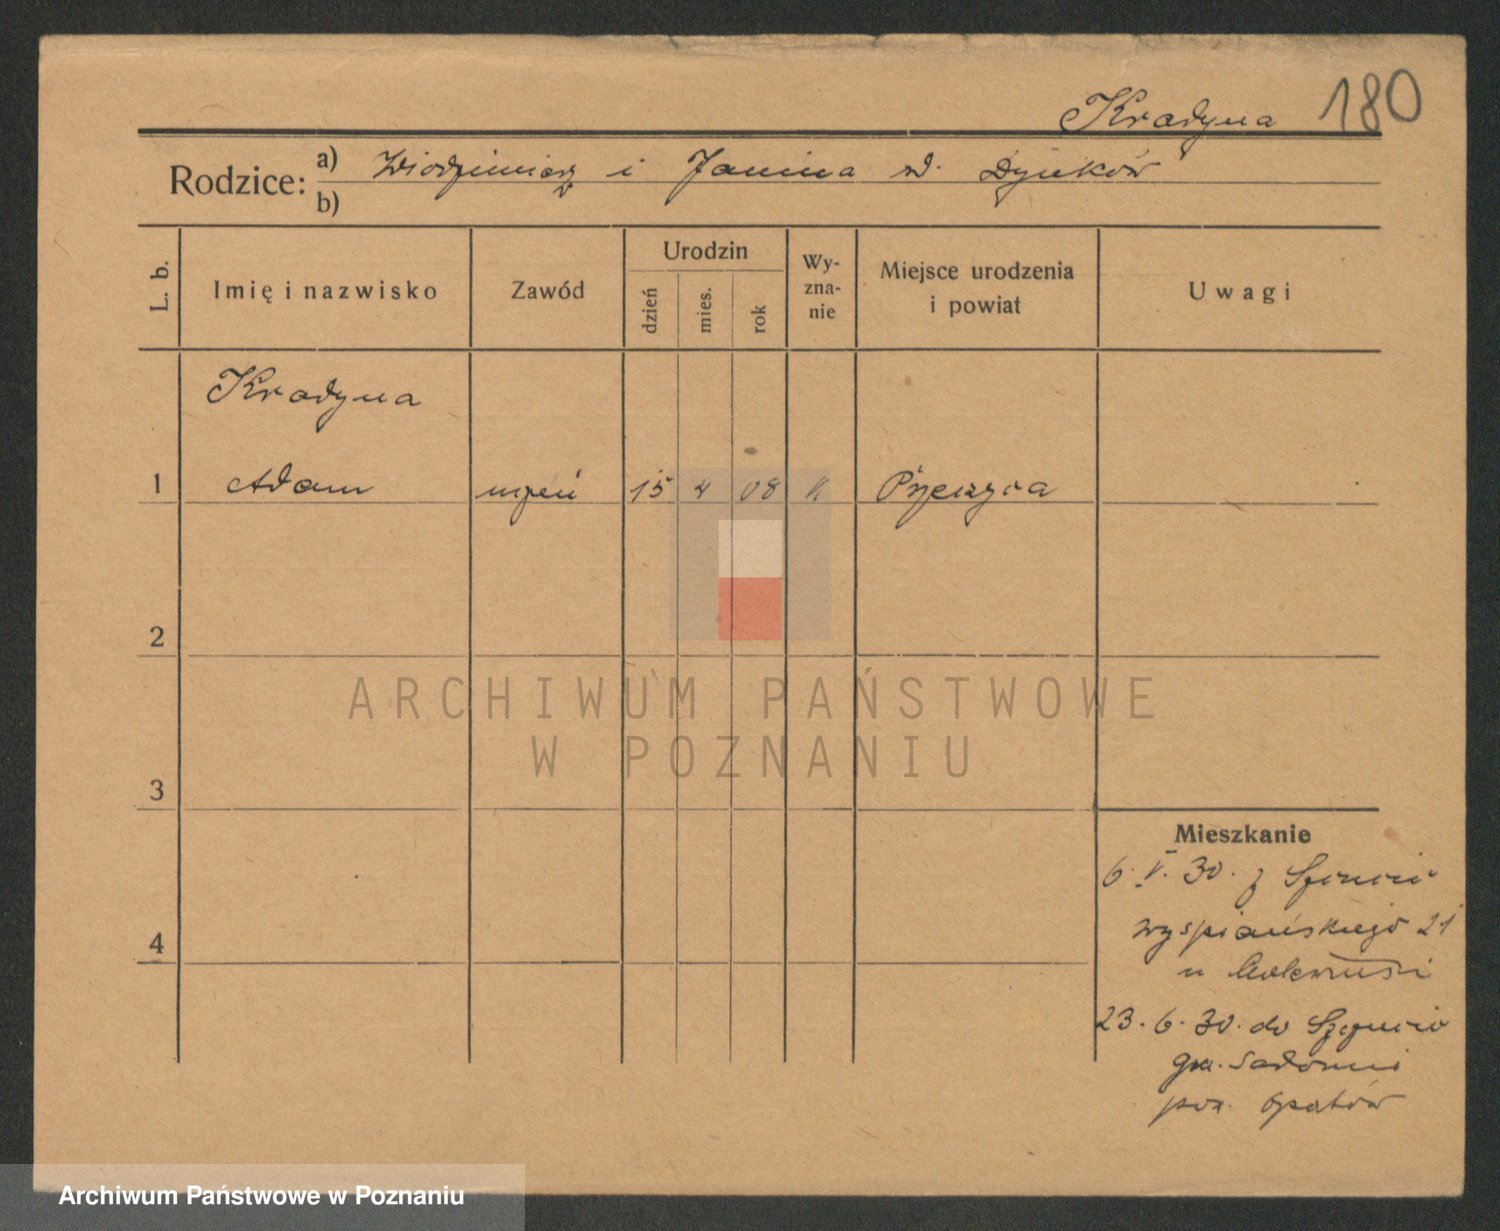 Kradyna 180
Rodzice: a) Włodzimierz i Janina d.
b)
L. b.
Imię i nazwisko
Zawód
Urodzin
dzień
mies.
rok
Wy-
zna-
nie
Miejsce urodzenia
i powiat
Uwagi
Kradyna
1 Adam uczeń 15 4 08 K
2
3
4
Mieszkanie
6. V. 30. z
Wyspiańskiego 21
u
23. 6. 30. do
gm.
pow. Opatów
ARCHIWUM PAŃSTWOWE
W POZNANIU
Archiwum Państwowe w Poznaniu